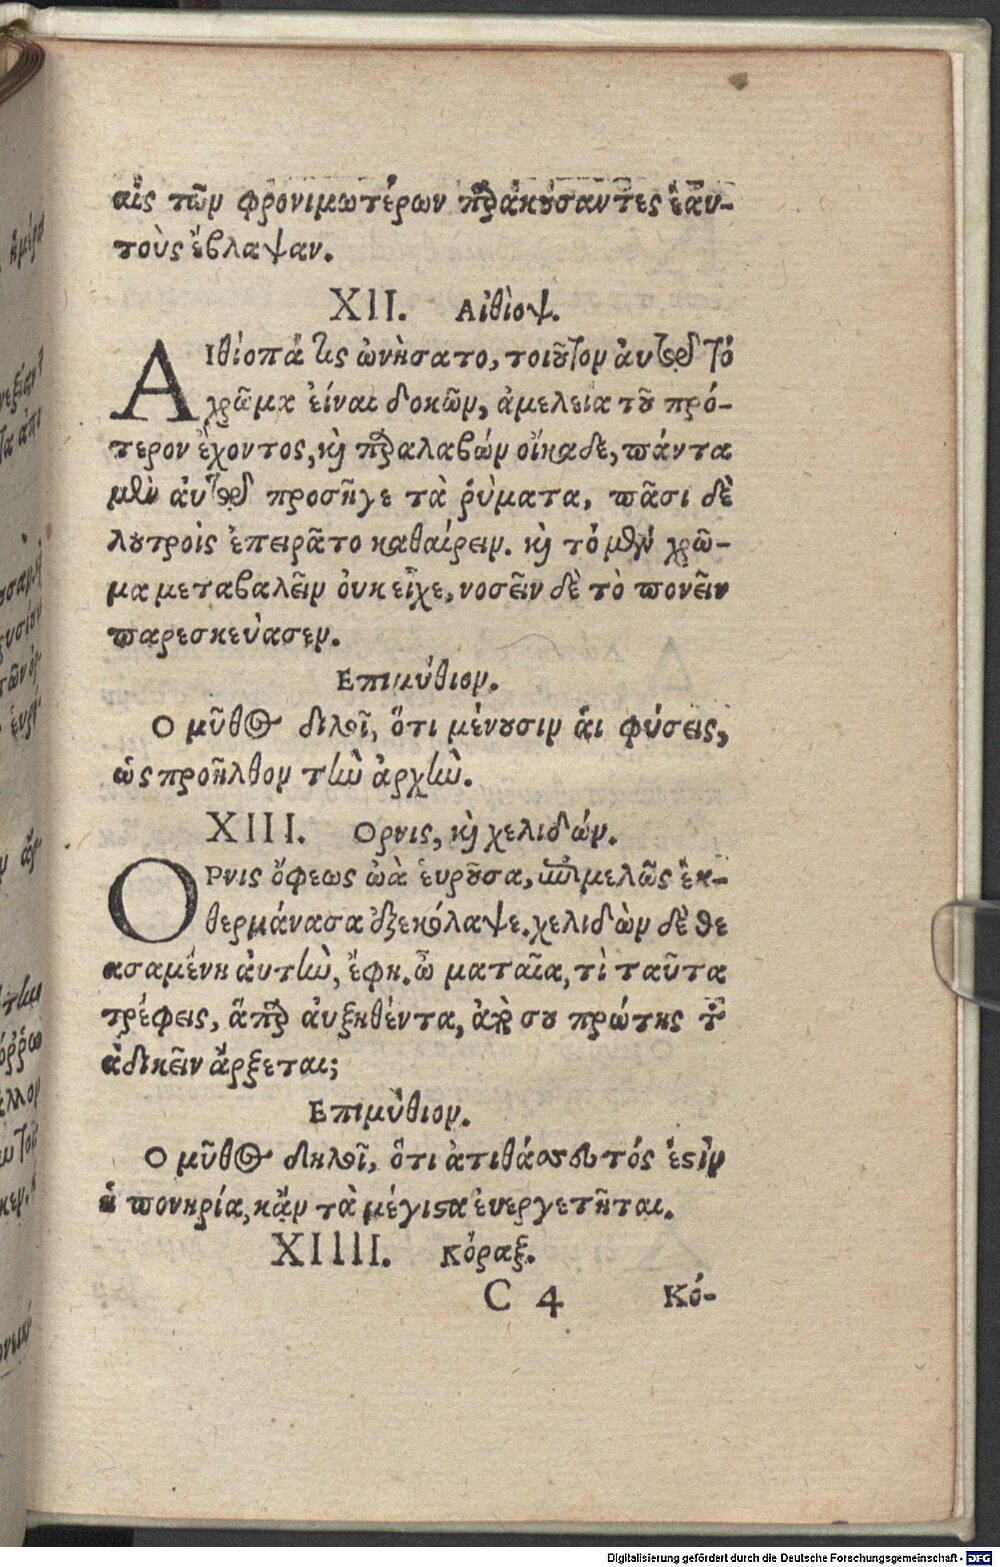 αἷς τῶν φρονιμωτέρων παρακούσαντες ἑαυ-
τοὺς ἔβλαψαν.
XII. Αἰθίοψ.
ΑΙθίοπά τις ὠνήσατο, τοιοῦτον ἀυτοῦ τό
χρῶμα ἐίναι δοκῶν, ἀμελεία τοῦ πρό-
τερον ἔχοντος, καὶ παραλαβών οἴκαδε, πάντα
μὲν ἀυτοῦ προσῆγε τὰ ῥύματα, πᾶσι δὲ
λουτροῖς ἐπειρᾶτο καθαίρειν. καὶ τό μὲν χρῶ-
μα μεταβαλεῖν ὀυκ εἶχε, νοσεῖν δὲ τὸ πονεῖν
παρεσκεύασεν.
Επιμύθιον.
Ο μῦθος διλοῖ, ὅτι μένουσιν ἁι φύσεις,
ὡς προῆλθον τὴν ἀρχὴν.
XIII. Ορνις, καὶ χελιδών.
ΟΡνις ὄφεως ὠὰ ἑυροῦσα, ἐπιμελῶς ἐκ-
θερμάνασα ἐξεκόλαψε. χελιδὼν δὲ θε
ασαμένη ἀυτὴν, ἔφη. ὦ ματαῖα, τὶ ταῦτα
τρέφεις, ἅπερ ἀυξηθέντα, ἀπὸ σου πρώτης τοῦ
ἀδικεῖν ἄρξεται;
Επιμύθιον.
Ο μῦθος δηλοῖ, ὅτι ἀτιθάσσευτός ἐστὶν
ἡ πονηρία, κἄν τὰ μέγιστα ἐυεργετῆται.
XIIII. Κόραξ.
C 4 Κό-
Digitalisierung gefördert durch die Deutsche Forschungsgemeinschaft - DFG